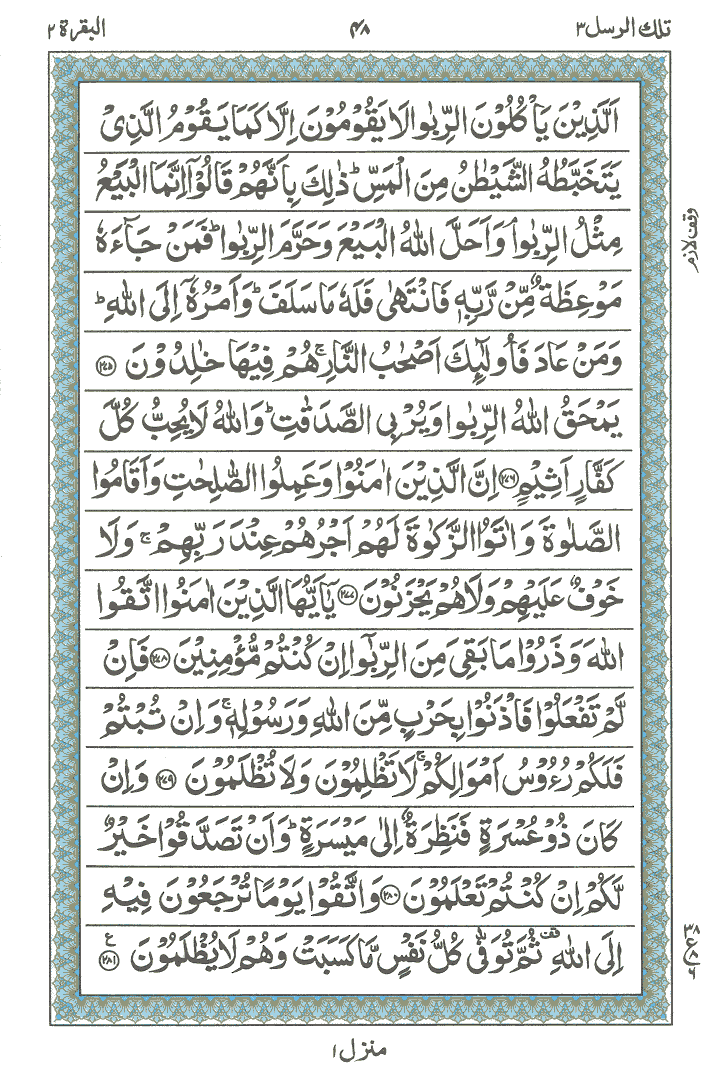 تلك الرسل ٣ ٤٨ البقرة ٢
اَلَّذِیْنَ یَاْكُلُوْنَ الرِّبٰوا لَا یَقُوْمُوْنَ اِلَّا كَمَا یَقُوْمُ الَّذِیْ
یَتَخَبَّطُهُ الشَّیْطٰنُ مِنَ الْمَسِّ ؕ ذٰلِكَ بِاَنَّهُمْ قَالُوْۤا اِنَّمَا الْبَیْعُ
مِثْلُ الرِّبٰوا ۘ وَاَحَلَّ اللّٰهُ الْبَیْعَ وَحَرَّمَ الرِّبٰوا ؕ فَمَنْ جَآءَهٗ
وقف لازم
مَوْعِظَةٌ مِّنْ رَّبِّهٖ فَانْتَهٰی فَلَهٗ مَا سَلَفَ ؕ وَاَمْرُهٗۤ اِلَی اللّٰهِ ؕ
وَمَنْ عَادَ فَاُولٰٓىِٕكَ اَصْحٰبُ النَّارِ ۚ هُمْ فِیْهَا خٰلِدُوْنَ ﴿۲۷۵﴾
یَمْحَقُ اللّٰهُ الرِّبٰوا وَیُرْبِی الصَّدَقٰتِ ؕ وَاللّٰهُ لَا یُحِبُّ كُلَّ
كَفَّارٍ اَثِیْمٍ ﴿۲۷۶﴾ اِنَّ الَّذِیْنَ اٰمَنُوْا وَعَمِلُوا الصّٰلِحٰتِ وَاَقَامُوا
الصَّلٰوةَ وَاٰتَوُا الزَّكٰوةَ لَهُمْ اَجْرُهُمْ عِنْدَ رَبِّهِمْ ۚ وَلَا
خَوْفٌ عَلَیْهِمْ وَلَا هُمْ یَحْزَنُوْنَ ﴿۲۷۷﴾ یٰۤاَیُّهَا الَّذِیْنَ اٰمَنُوا اتَّقُوا
اللّٰهَ وَذَرُوْا مَا بَقِیَ مِنَ الرِّبٰۤوا اِنْ كُنْتُمْ مُّؤْمِنِیْنَ ﴿۲۷۸﴾ فَاِنْ
لَّمْ تَفْعَلُوْا فَاْذَنُوْا بِحَرْبٍ مِّنَ اللّٰهِ وَرَسُوْلِهٖ ۚ وَاِنْ تُبْتُمْ
فَلَكُمْ رُءُوْسُ اَمْوَالِكُمْ ۚ لَا تَظْلِمُوْنَ وَلَا تُظْلَمُوْنَ ﴿۲۷۹﴾ وَاِنْ
كَانَ ذُوْ عُسْرَةٍ فَنَظِرَةٌ اِلٰی مَیْسَرَةٍ ؕ وَاَنْ تَصَدَّقُوْا خَیْرٌ
لَّكُمْ اِنْ كُنْتُمْ تَعْلَمُوْنَ ﴿۲۸۰﴾ وَاتَّقُوْا یَوْمًا تُرْجَعُوْنَ فِیْهِ
اِلَی اللّٰهِ ۫ۗ ثُمَّ تُوَفّٰی كُلُّ نَفْسٍ مَّا كَسَبَتْ وَهُمْ لَا یُظْلَمُوْنَ ﴿۲۸۱﴾ ع
۳۸ ع ۸ ۶
منزل ١